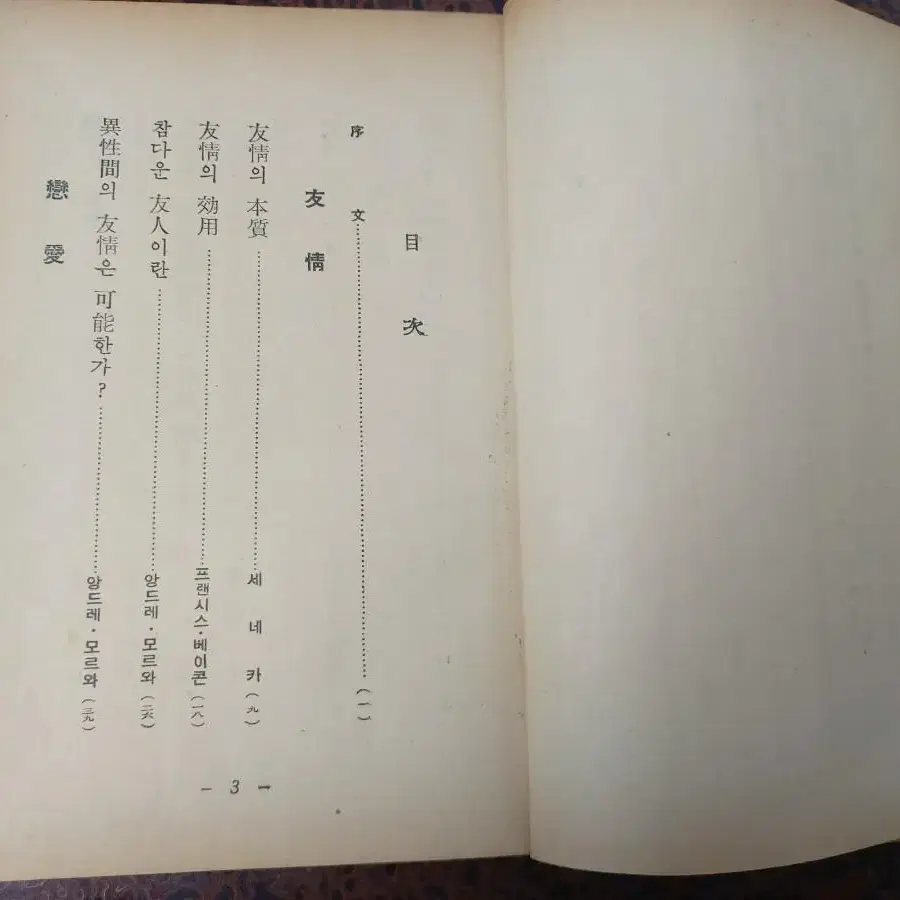 目次
序文……(一)
友情
友情의 本質……세네카(九)
友情의 効用……프랜시스·베이콘(一八)
참다운 友人이란……앙드레·모르와(二六)
異性間의 友情은 可能한가?……앙드레·모르와(三九)
戀愛
— 3 —